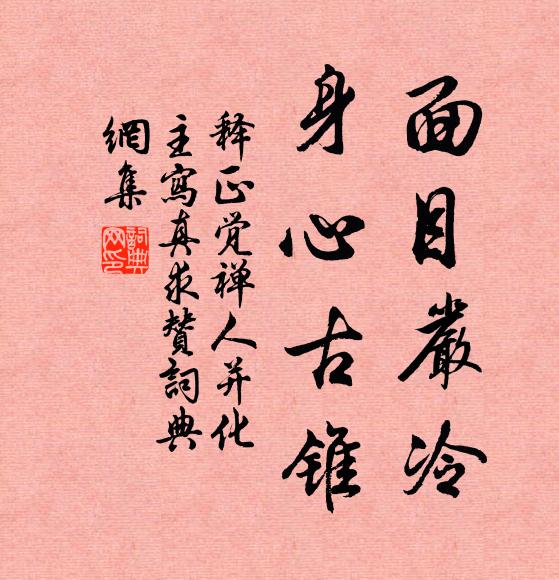 面目嚴冷
身心古錐
释正觉禅人并化
主寫真求贊詞典
網集
詞典網印